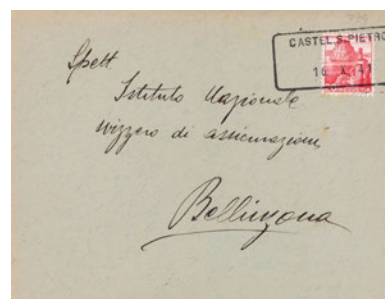 CASTEL S. PIETRO
16. X. 41
Spett
Istituto Nazionale
svizzero di assicurazioni
Bellinzona